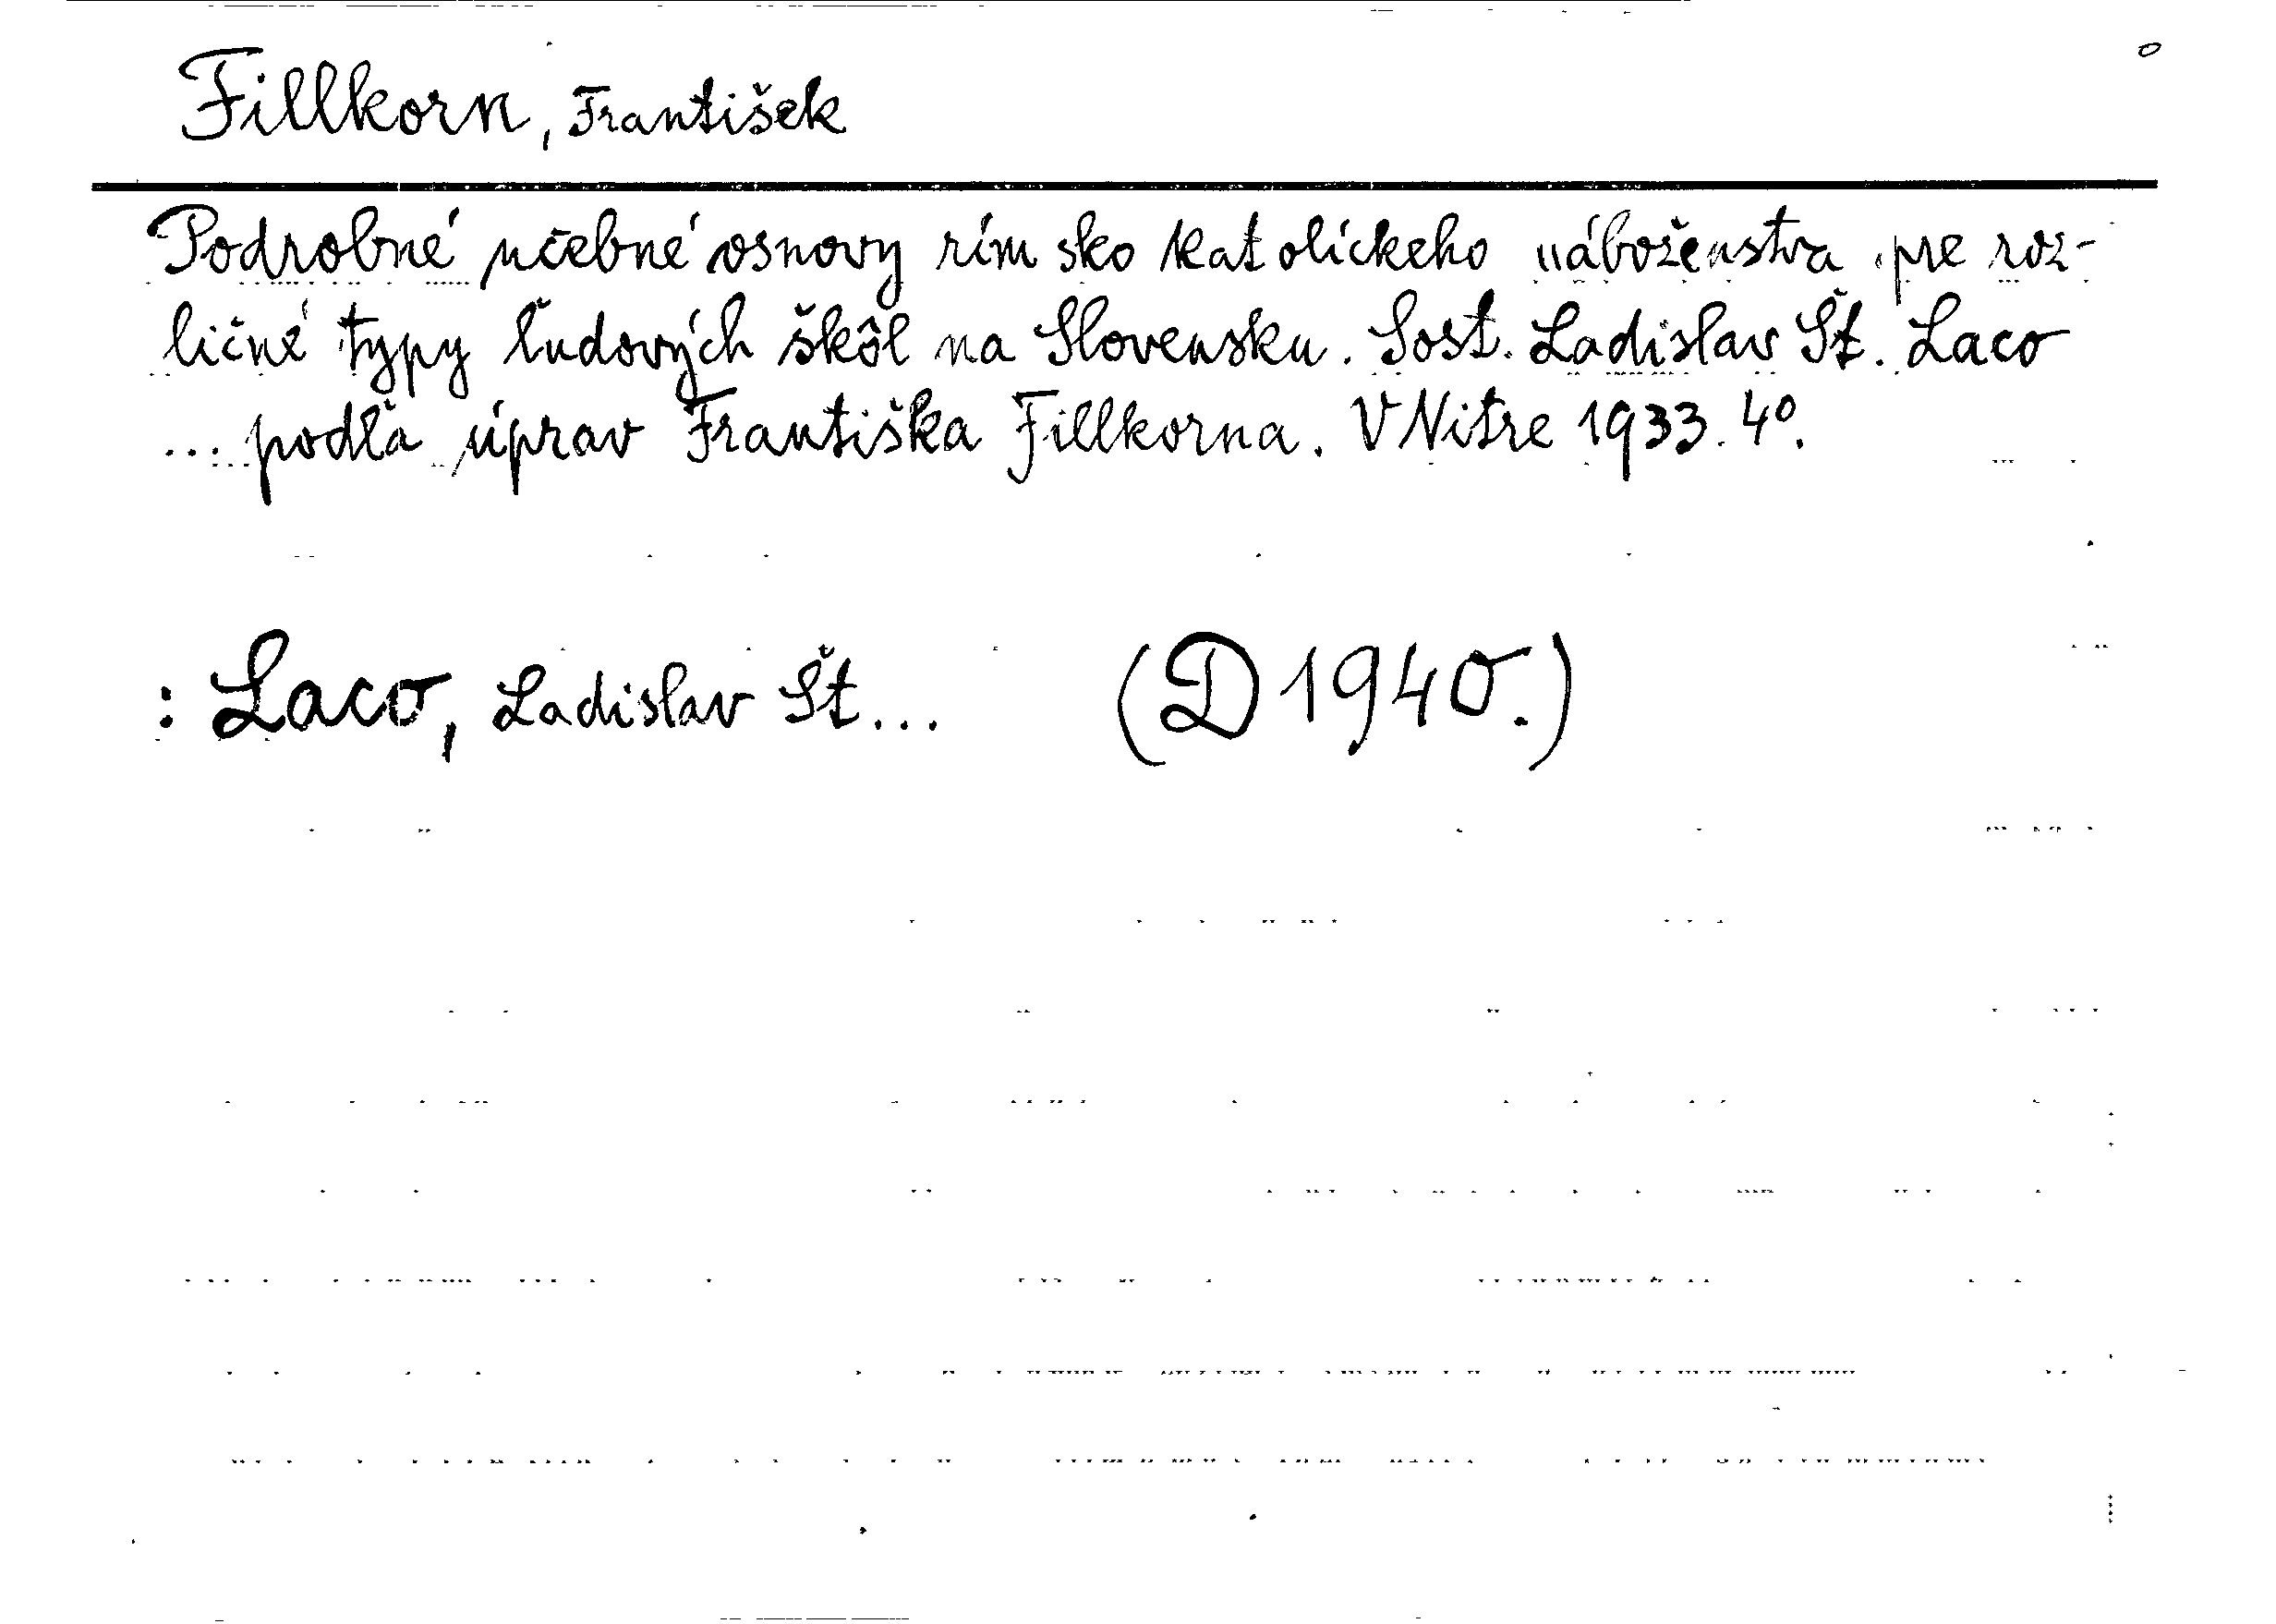 Fillkorn, František
Podrobné učebné osnovy rímsko katolíckeho náboženstva pre roz-
ličné typy ľudových škôl na Slovensku. Sost. Ladislav Št. Laco
... podľa úprav Františka Fillkorna. V Nitre 1933. 4°.
: Laco, Ladislav Št... (D 1940.)